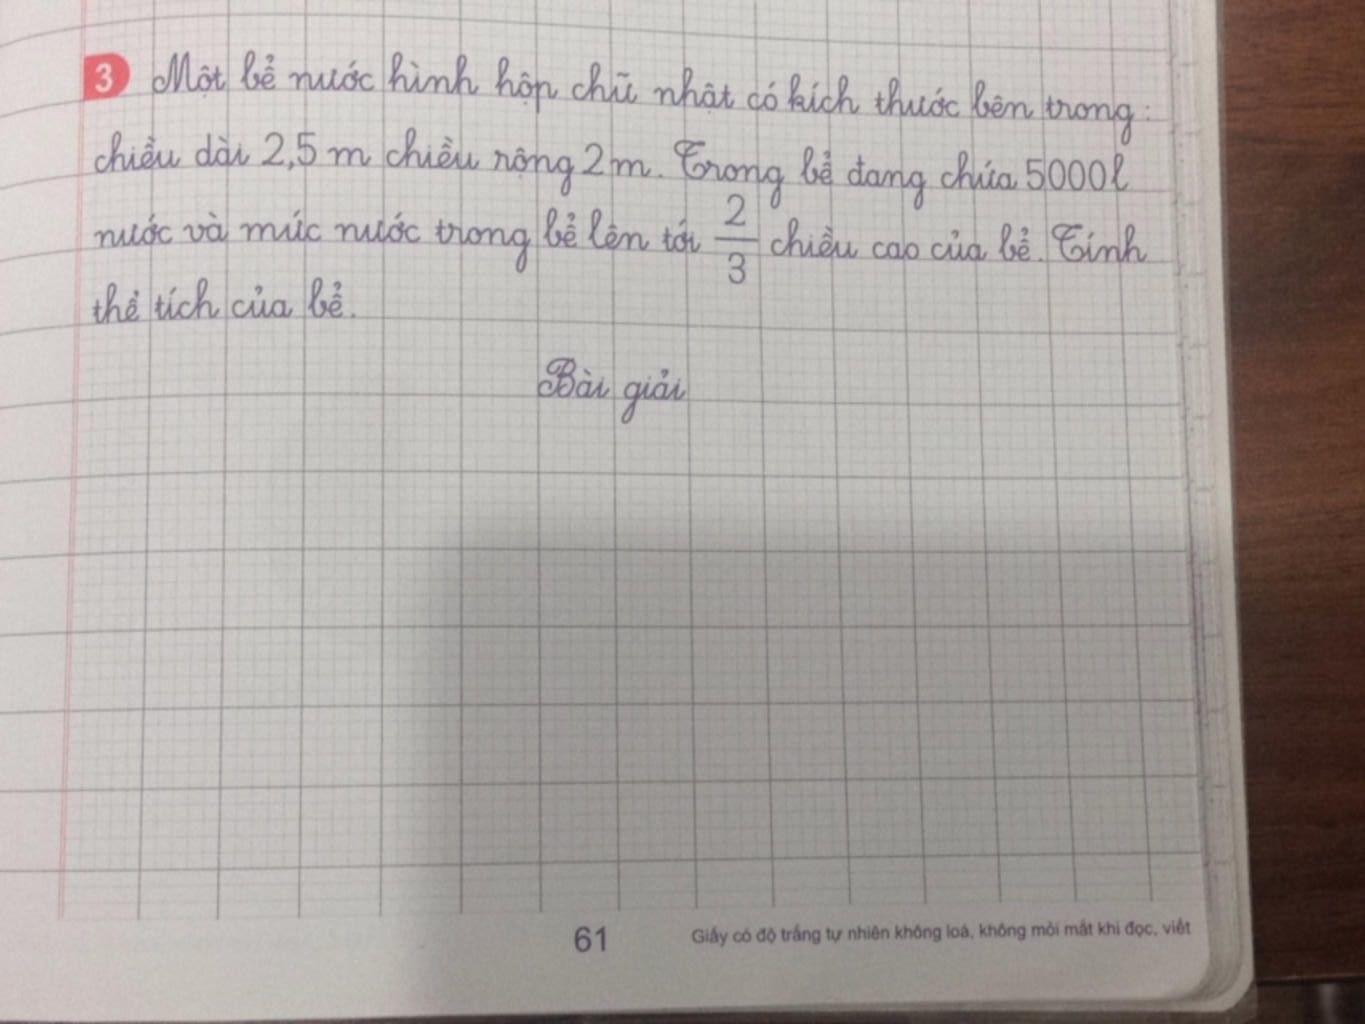 3 Một bể nước hình hộp chữ nhật có kích thước bên trong:
chiều dài 2,5 m chiều rộng 2 m. Trong bể đang chứa 5000l
nước và mức nước trong bể lên tới 2/3 chiều cao của bể. Tính
thể tích của bể.
Bài giải
61
Giấy có độ trắng tự nhiên không loá, không mỏi mắt khi đọc, viết